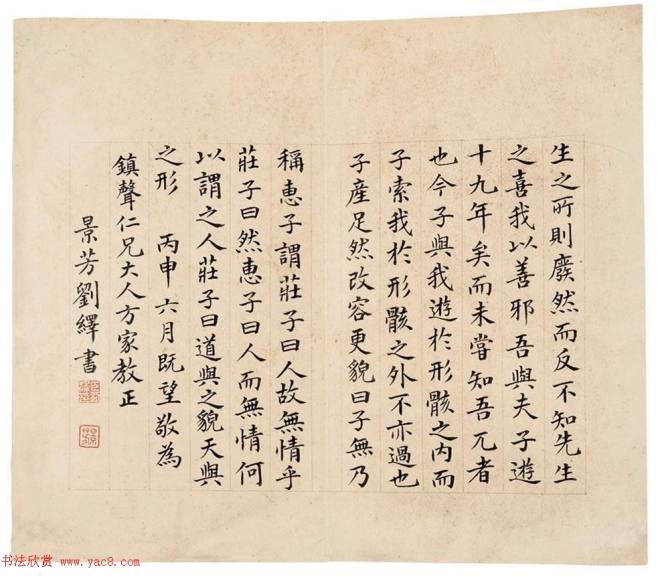 生之所則廢然而反不知先生
之喜我以善邪吾與夫子遊
十九年矣而未嘗知吾兀者
也今子與我遊於形骸之內而
子索我於形骸之外不亦過也
子產足然改容更貌曰子無乃
稱惠子謂莊子曰人故無情乎
莊子曰然惠子曰人而無情何
以謂之人莊子曰道與之貌天與
之形 丙申六月既望敬為
鎮聲仁兄大人方家教正
景芳劉繹書
书法欣赏 www.yac8.com